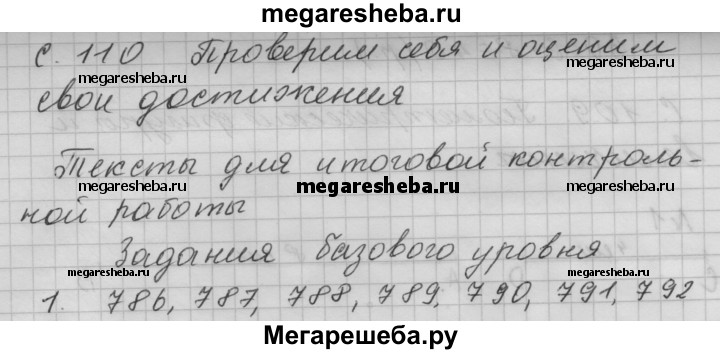 megaresheba.ru
с. 110 Проверим себя и оценим
megaresheba.ru megaresheba.ru
свои достижения
Тексты для итоговой контроль-
megaresheba.ru
ной работы
Задания базового уровня
megaresheba.ru megaresheba.ru
1. 786, 787, 788, 789, 790, 791, 792
Мегарешеба.ру